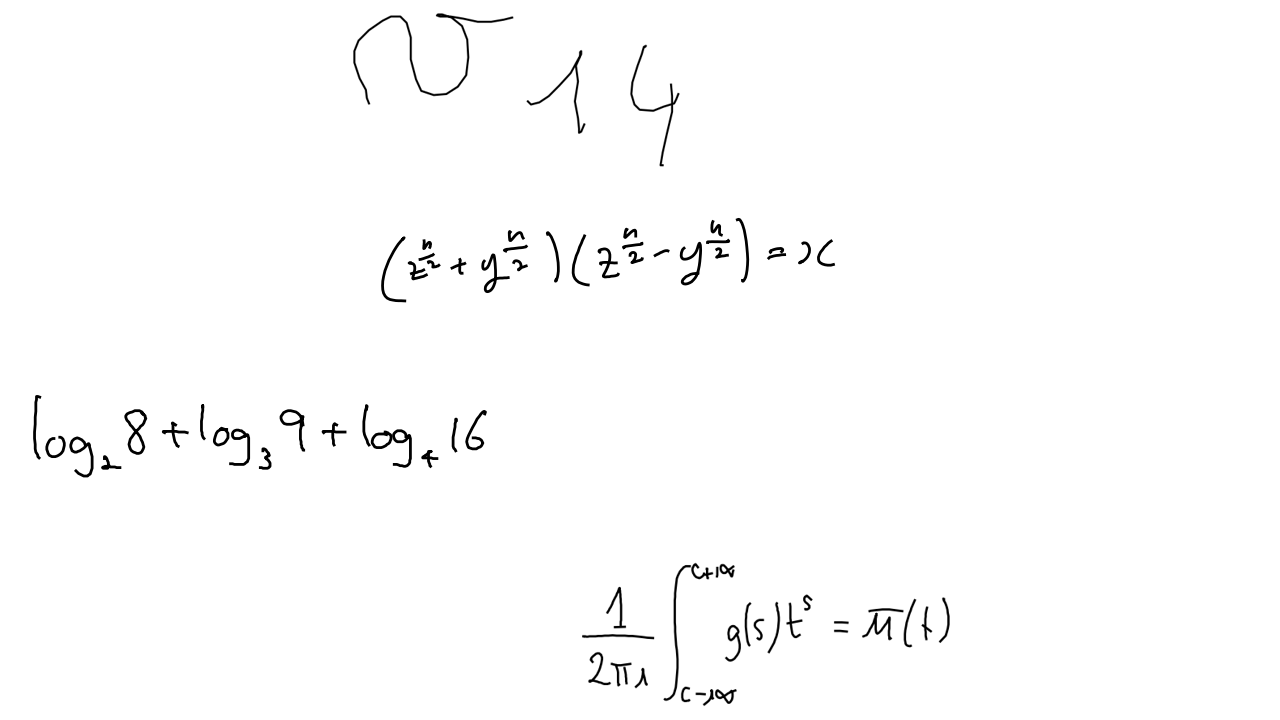 ∾ 14
(z^{n/2} + y^{n/2})(z^{n/2} - y^{n/2}) = x
log₂ 8 + log₃ 9 + log₄ 16
\frac{1}{2πi} ∫_{c-i∞}^{c+i∞} g(s)t^s = \overline{M}(t)